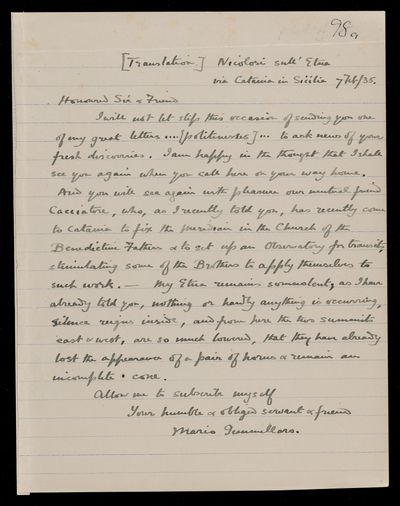 98a
[Translation.] Nicolosi sull' Etna
via Catania in Sicilia 7 Feb/35.
Honoured Sir & Friend
I will not let slip this occasion of sending you one
of my great letters....[politenesses]... to ask news of your
fresh discoveries. I am happy in the thought that I shall
see you again when you call here on your way home.
And you will see again with pleasure our mutual friend
Cacciatore, who, as I recently told you, has recently come
to Catania to fix the meridian in the Church of the
Benedictine Fathers & to set up an Observatory for transits,
stimulating some of the Brothers to apply themselves to
such work. — My Etna remains somnolent, as I have
already told you, nothing or hardly anything is occurring,
silence reigns inside, and from here the two summits
east & west, are so much lowered, that they have already
lost the appearance of a pair of horns & remain an
incomplete cone.
Allow me to subscribe myself
Your humble & obliged servant & friend
Mario Gemmellaro.